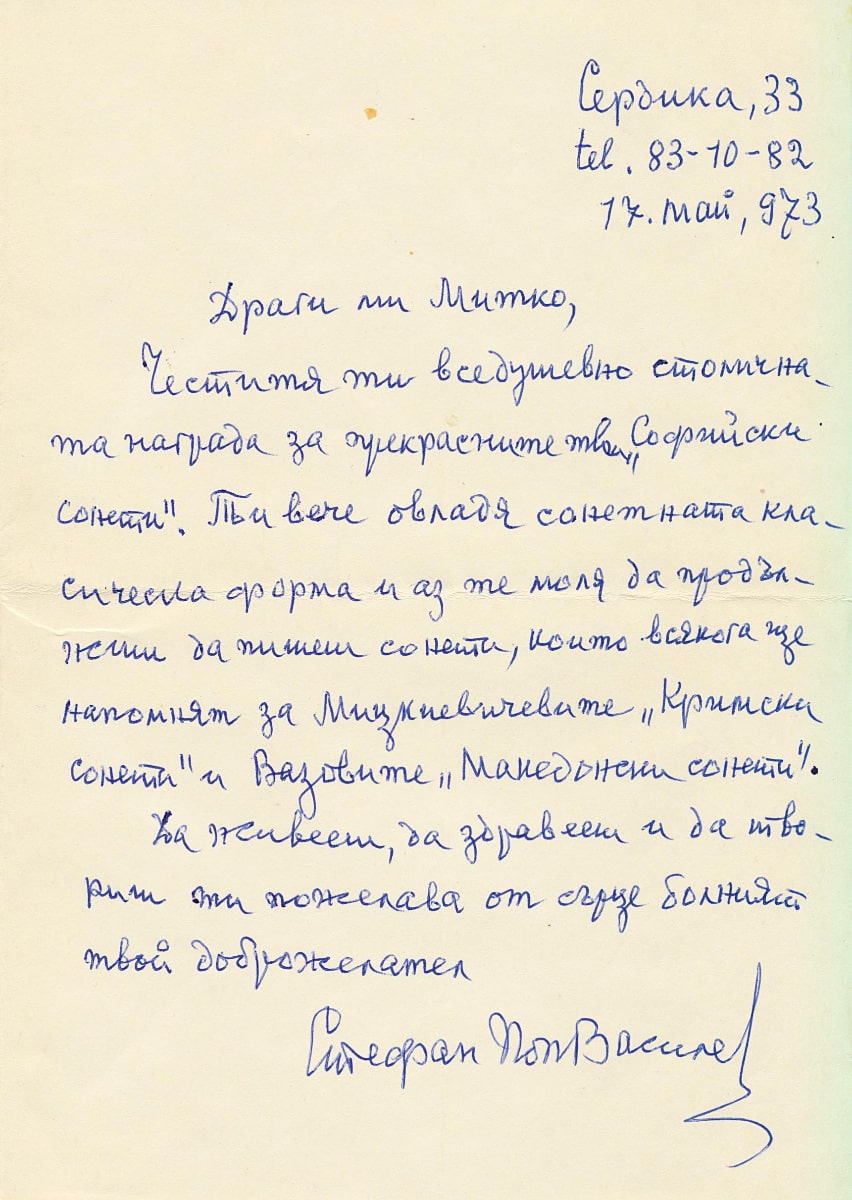 Сердика, 33
tel. 83-10-82
17. май, 973
Драги ми Митко,
Честитя ти вседушевно столична-
та награда за прекрасните тви „Софийски
сонети". Ти вече овладя сонетната кла-
сическа форма и аз те моля да продъл-
жиш да пишеш сонети, които всякога ще
напомнят за Мицкиевичевите „Кримски
сонети" и Вазовите „Македонски сонети".
Да живееш, да здравееш и да тво-
риш ти пожелава от сърце болният
твой доброжелател
Стефан Поп Василев